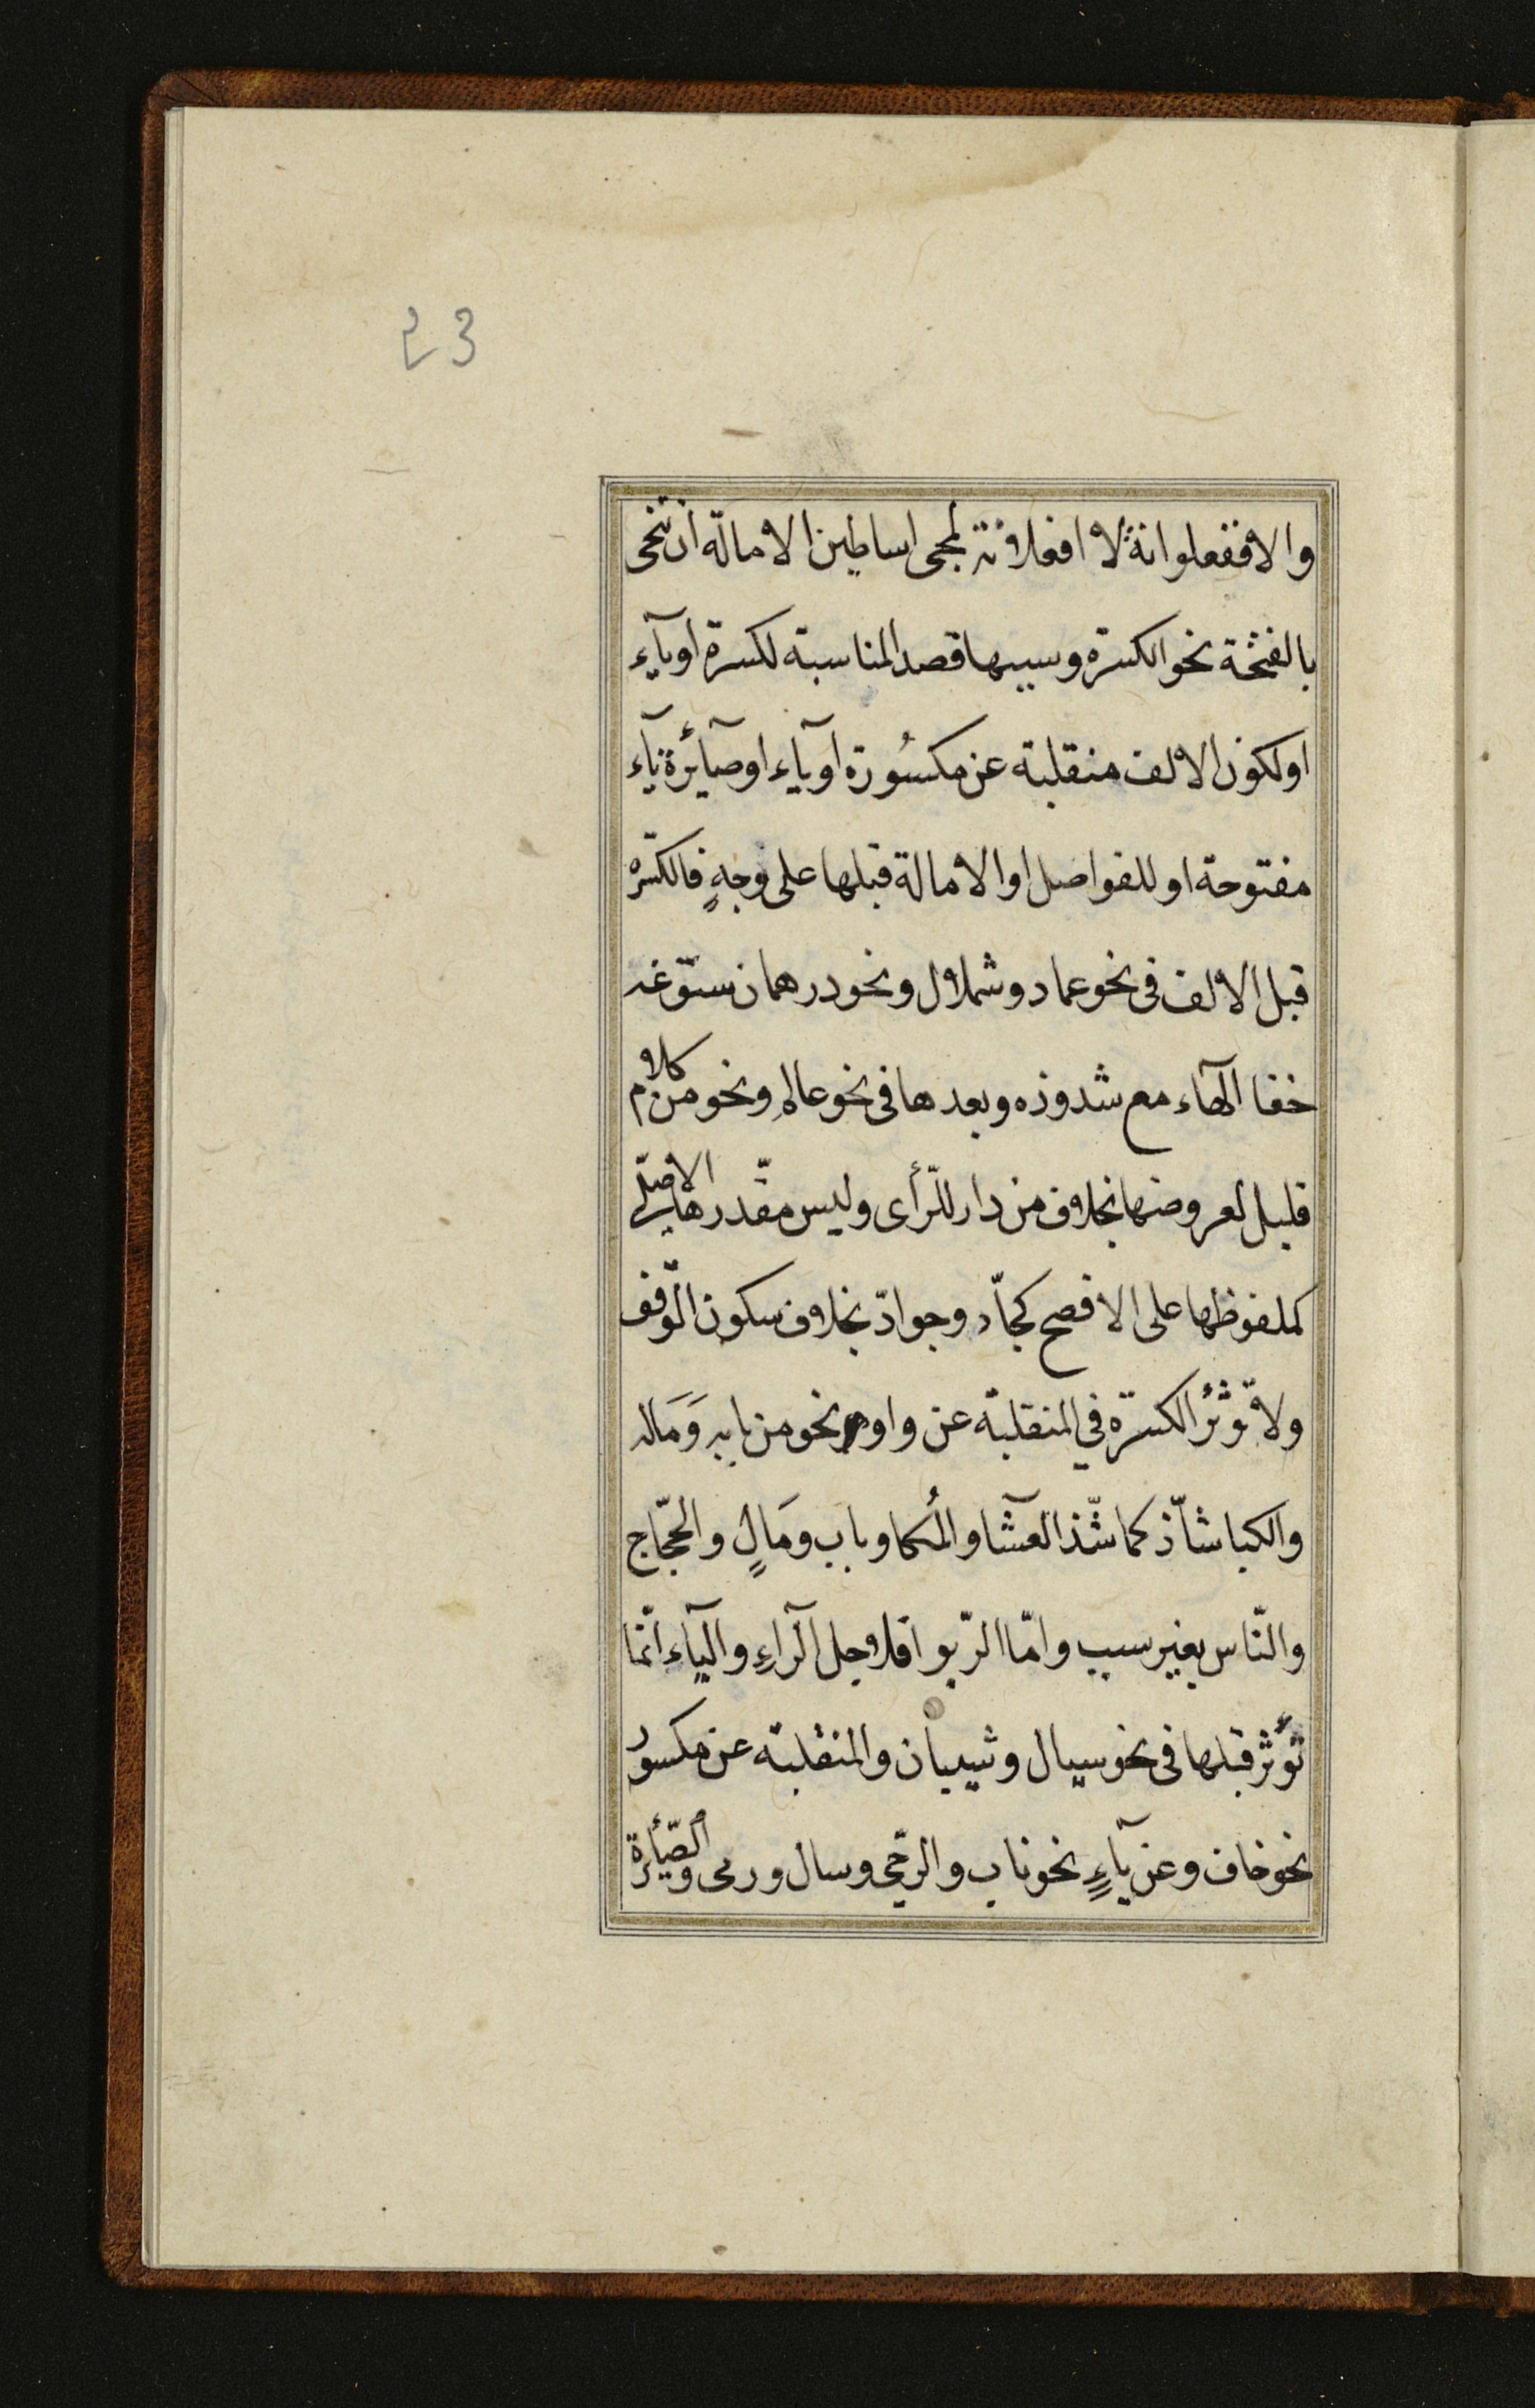 23
والا ففعلوانة لا افعلانة لمجى اساطين الامالة ان تنحى
بالفتحة نحو الكسرة وسببها قصد المناسبة لكسرة او يآء
او لكون الالف منقلبة عن مكسُورة او يآء او صآئرة يآء
مفتوحة او للفواصل او الامالة قبلها على وجهٍ فالكسّره
قبل الالف فى نحو عماد وشملال ونحو درهمان سوّغه
خفا الهآء مع شذوذه وبعدها فى نحو عالمٍ ونحو من كلام
قليل لعروضها بخلاف من دار للرّأى وليس مقدّرها الاصلّى
كملفوظها على الافصح كجادّ وجوادّ بخلاف سكون الوّقف
ولا تؤثّرُ الكسرة في المنقلبة عن واوٍ نحو من بابه وَمَاله
والكبا شآذّ كما شّذ العشآ والمُكا وباب ومَالٍ والحجّاج
والنّاس بغير سبب وامّا الرّبوا فلاجل الرآءِ واليآء انّما
تؤثر قبلها فى نحو سيال وشيبان والمنقلبة عن مكسور
نحو خاف وعن يآءٍ نحو ناب والرّحى وسال ورمى والصّآئرة